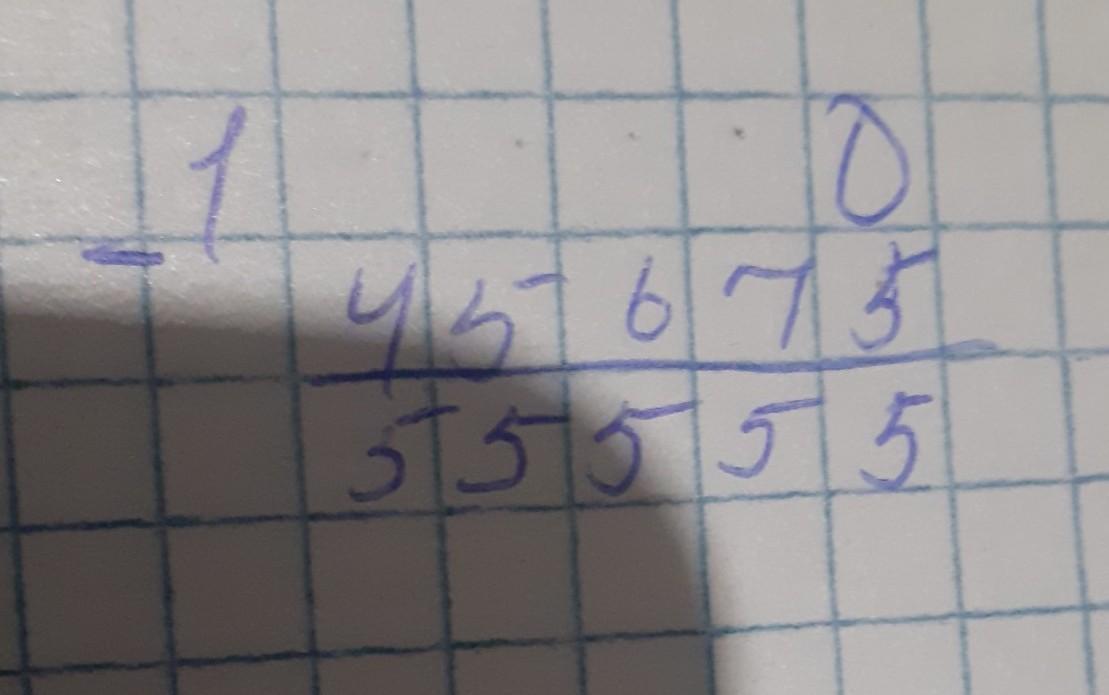 1 0
-
45675
55555